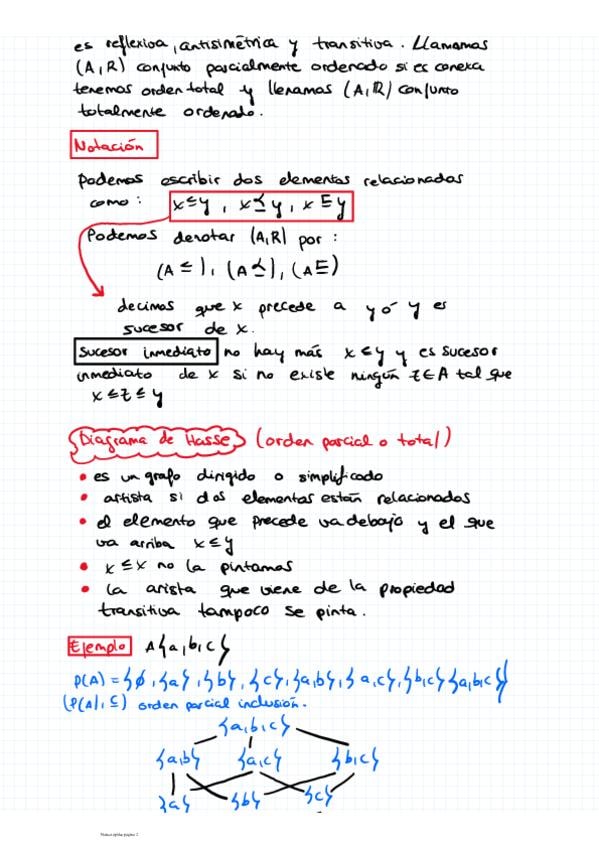 es reflexiva, antisimétrica y transitiva. Llamamos
(A,R) conjunto parcialmente ordenado si es conexa
tenemos orden total y llamamos (A,R) conjunto
totalmente ordenado.
Notación
Podemos escribir dos elementos relacionados
como: x≤y, x≼y, x⊑y
Podemos denotar (A,R) por:
(A≤), (A≼), (A⊑)
decimos que x precede a y ó y es
sucesor de x.
Sucesor inmediato no hay más x≤y y es sucesor
inmediato de x si no existe ningún z∈A tal que
x≤z≤y
Diagrama de Hasse (orden parcial o total)
• es un grafo dirigido o simplificado
• artista si dos elementos están relacionados
• el elemento que precede va debajo y el que
va arriba x≤y
• x≤x no la pintamos
• la arista que viene de la propiedad
transitiva tampoco se pinta.
Ejemplo A{a,b,c}
P(A)={∅,{a},{b},{c},{a,b},{a,c},{b,c}{a,b,c}}
(P(A),⊆) orden parcial inclusión.
{a,b,c}
{a,b} {a,c} {b,c}
{a} {b} {c}